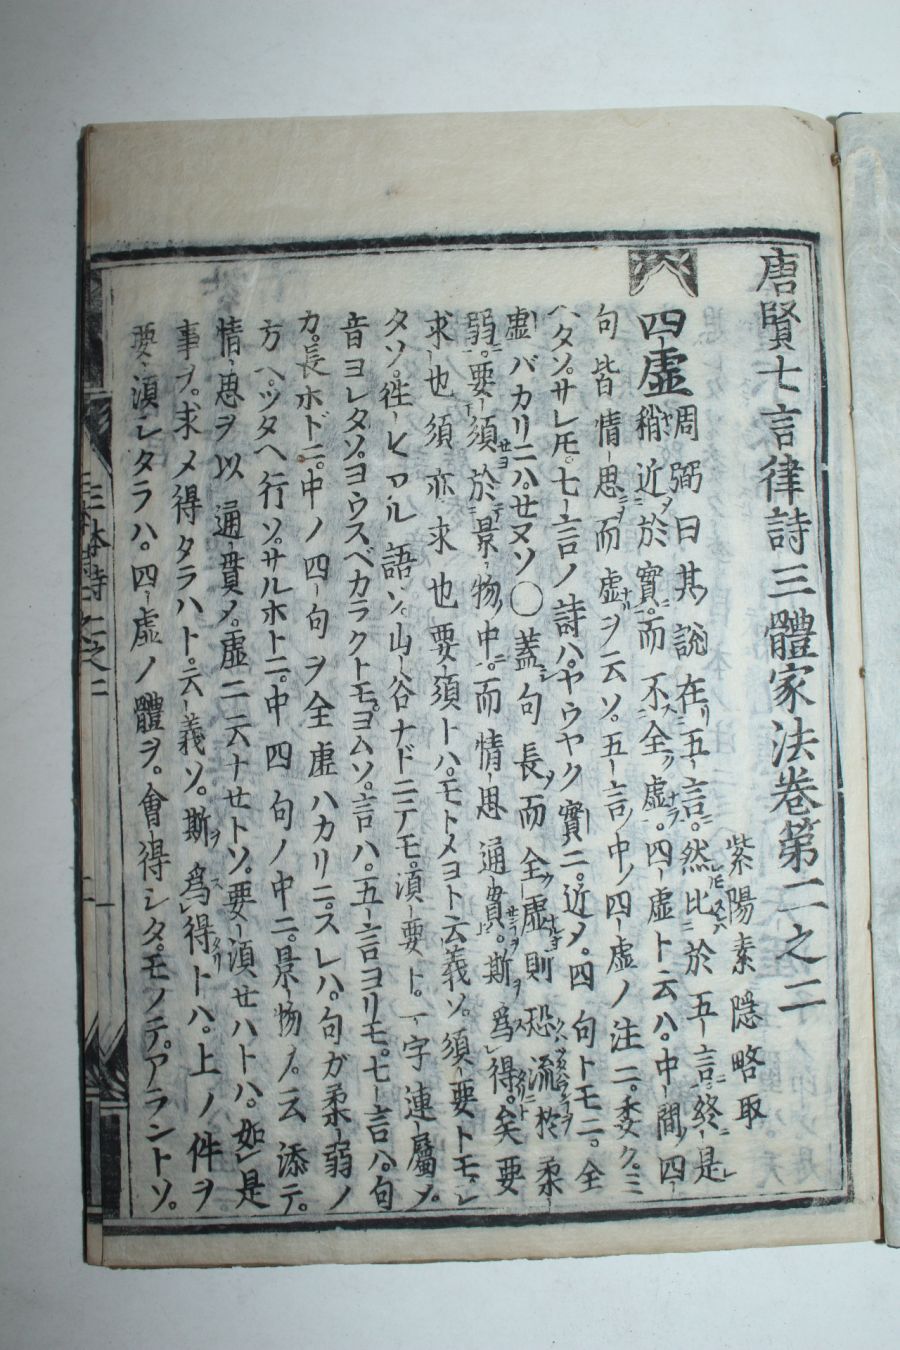 唐賢七言律詩三體家法卷第二之二
紫陽素隱略取
四虛 周弼曰其說在五言然比於五言終是
稍近於實而不全虛四虛ト云ハ中間ノ四
句皆情思而虛ヲ云ソ五言ノ中ノ四虛ノ注ニ委クミ
ヘタソサレ𪜈七言ノ詩ハヤウヤク實ニ近メ四句トモニ全
虛バカリニハせヌソ〇蓋句長而全虛則恐流於柔
弱要須於景物中而情思通貫斯爲得矣要
求也須亦求也要須トハモトメヨト云義ソ須要トモレ
タソ徃ヒロル語ソ山谷ナドニテモ須要ト一字連屬メ
音ヨレタソヨウスベカラクトモヨムソ言ハ五言ヨリモ七言ハ句
カ長ホドニ中ノ四句ヲ全虛ハカリニスレハ句ガ柔弱ノ
方ヘツタヘ行ソサルホトニ中四句ノ中ニ景物ノ云添テ
情思ヲ以通貫メ虛ニ云ナせトソ要須せハトハ如是
事ヲ求メ得タラハト云義ソ斯爲得トハ上ノ件ヲ
要須レタラハ四虛ノ體ヲ會得シタモノテアラントソ
三体詩二之二